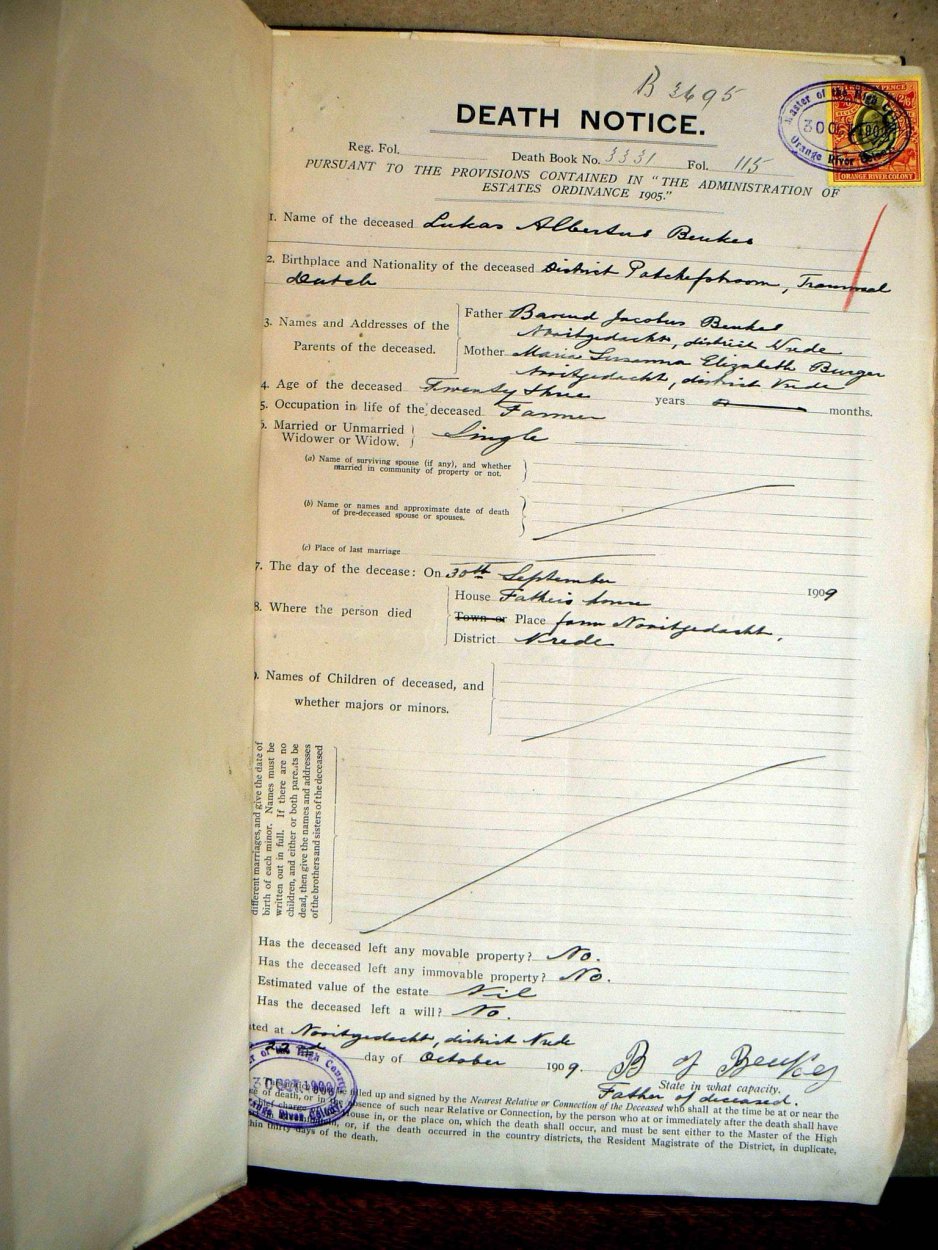 B 3495
DEATH NOTICE.
Master of the High Court
30 OCT 1909
Orange River Colony
2/6
ORANGE RIVER COLONY
Reg. Fol. Death Book No. 3331 Fol. 115
PURSUANT TO THE PROVISIONS CONTAINED IN "THE ADMINISTRATION OF
ESTATES ORDINANCE 1905."
1. Name of the deceased Lukas Albertus Beukes
2. Birthplace and Nationality of the deceased District Potchefstroom, Transvaal
Dutch
3. Names and Addresses of the Parents of the deceased.
Father Barend Jacobus Beukes
Nooitgedacht, district Vrede
Mother Maria Susanna Elizabeth Burger
Nooitgedacht, district Vrede
4. Age of the deceased Twenty three years months.
5. Occupation in life of the deceased Farmer
6. Married or Unmarried
Widower or Widow. Single
(a) Name of surviving spouse (if any), and whether
married in community of property or not.
(b) Name or names and approximate date of death
of pre-deceased spouse or spouses.
(c) Place of last marriage
7. The day of the decease: On 30th September 1909
8. Where the person died
House Father's home
Town or Place farm Nooitgedacht.
District Vrede
9. Names of Children of deceased, and
whether majors or minors.
different marriages, and give the date of
birth of each minor. Names must be
written out in full. If there are no
children, and either or both parents be
dead, then give the names and addresses
of the brothers and sisters of the deceased
Has the deceased left any movable property? No.
Has the deceased left any immovable property? No.
Estimated value of the estate Nil
Has the deceased left a will? No.
ted at Nooitgedacht, district Vrede
22nd day of October 1909. B J Beukes
State in what capacity.
Father of deceased.
er of the High Court
30 OCT 1909
Orange River Colony
be filled up and signed by the Nearest Relative or Connection of the Deceased who shall at the time be at or near the
e of death, or in absence of such near Relative or Connection, by the person who at or immediately after the death shall have
chief charge house in, or the place on, which the death shall occur, and must be sent either to the Master of the High
or, if the death occurred in the country districts, the Resident Magistrate of the District, in duplicate,
hin thirty days of the death.